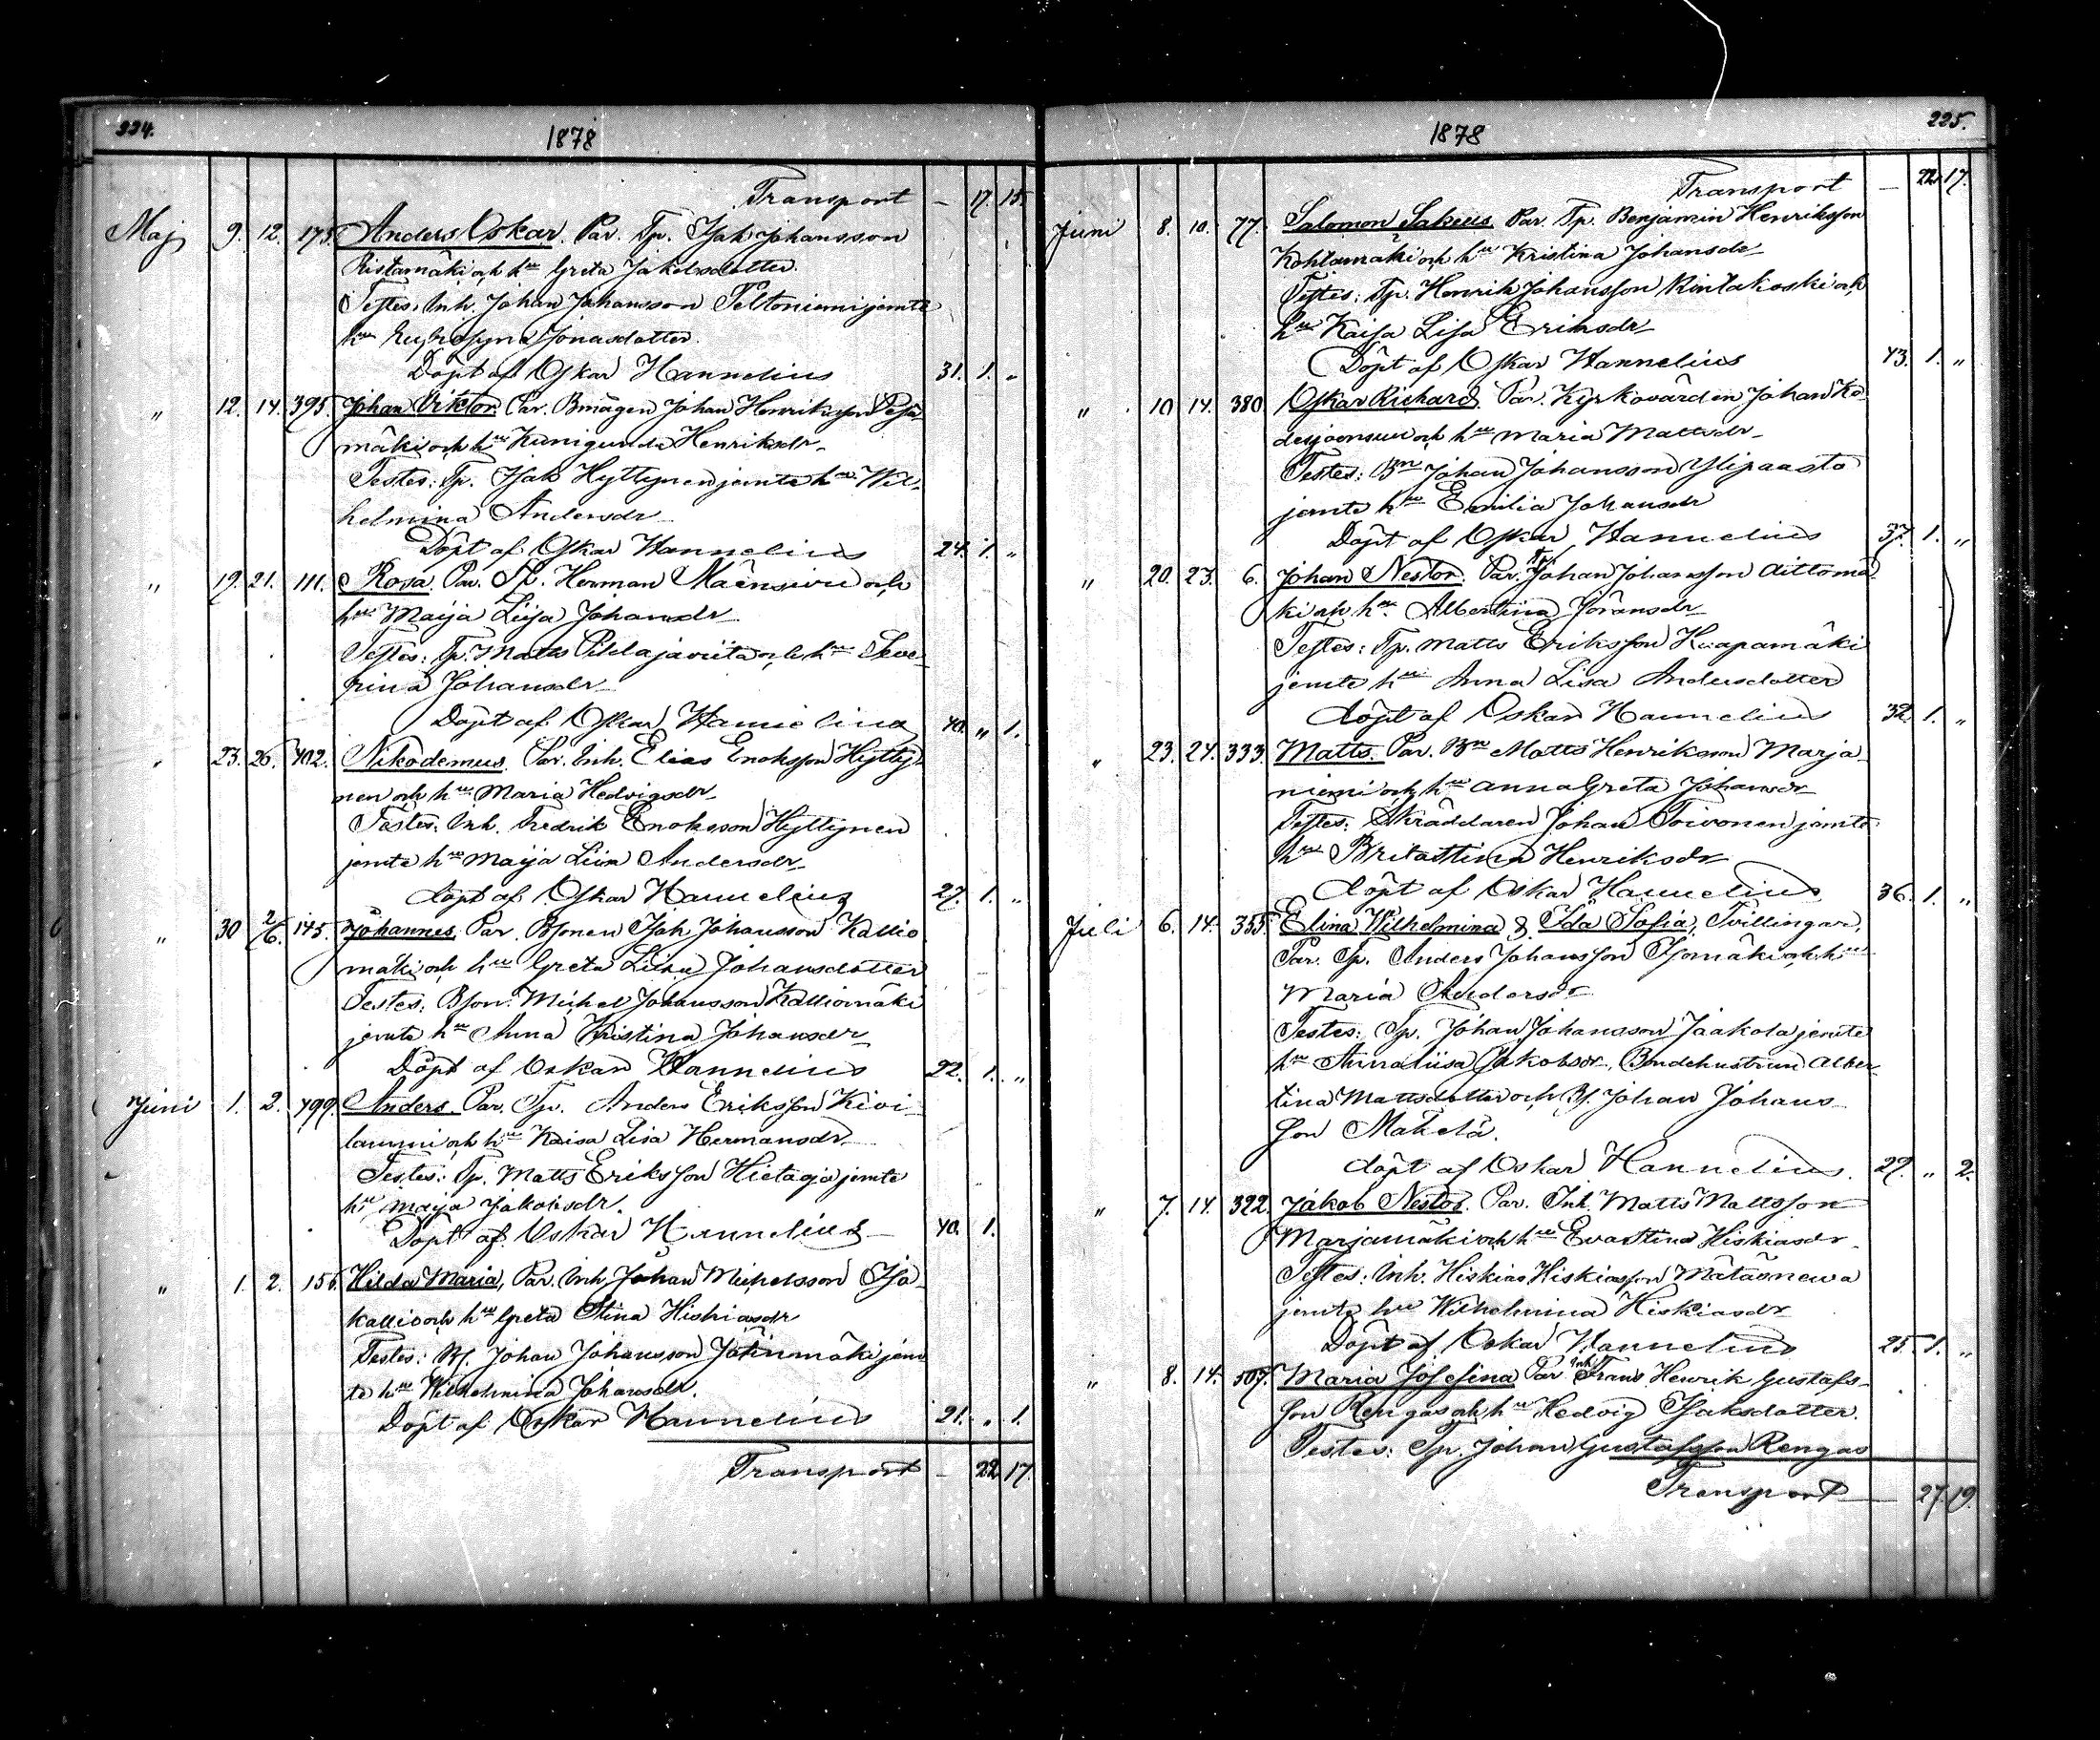 224.
1878
Transport — 17. 15.
Maj 9. 12. 175. Anders Oskar. Par. Tp. Isak Johansson
Ristamäki och hu Greta Jakobsdotter.
Testes, Inh. Johan Johansson Peltoniemi jemte
hu Eufrosyna Jonasdotter.
Döpt af Oskar Hannelius 31. 1. „
„ 12. 14. 395. Johan Viktor. Par. Bmågen Johan Henriksson Pesä-
mäki och hu Kunigunda Henriksdr
Testes: Tp. Isak Hyttynen jemte hu Wil-
helmina Andersdr
Döpt af Oskar Hannelius 24. 1. „
„ 19. 21. 111. Rosa. Par. Herman Mäensivu och
hu Maija Liisa Johansdr
Testes: Tp. Matts och hu Seve-
rina Johansdr
Döpt af Oskar Hannelius 40. „ 1.
„ 23. 26. 402. Nikodemus. Par. Inh. Elias Enoksson Hytty-
nen och hu Maria Hedvigsdr
Testes. Inh. Fredrik Enoksson Hyttynen
jemte hu Maija Liisa Andersdr
döpt af Oskar Hannelius 27. 1. „
„ 30 2/6. 145. Johannes. Par. Bsonen Isak Johansson Kallio
mäki och hu Greta Liisa Johansdotter
Testes. Bson. Michel Johansson Kalliomäki
jemte hu Anna Kristina Johansdr
Döpt af Oskar Hannelius 22. 1. „
Juni 1. 2. 499. Anders. Par. Tp. Anders Eriksson Kivi-
lammi och hu Kaisa Lisa Hermansdr
Testes: Tp. Matts Eriksson Hietaoja jemte
hu Maija Jakobsdr.
Döpt af Oskar Hannelius 40. 1.
„ 1. 2. 156. Hilda Maria, Par. Inh. Johan Michelsson Iso-
kallio och hu Greta Stina Hiskiasdr
Testes: Bf. Johan Johansson jem
te hu Wilhelmina Johansdr.
Döpt af Oskar Hannelius 21. „ 1.
Transport — 22 17.
225.
1878
Transport — 22 17.
Juni 8. 10. 77. Salomon Sakeus. Par. Tp. Benjamin Henriksson
Kohtamäki och hu Kristina Johansdr
Testes: Tp. Henrik Johansson Rintakoski och
hu Kaisa Lisa Eriksdr
Döpt af Oskar Hannelius 43. 1. „
„ 10 14. 380 Oskar Richard. Par. Kyrkovärden Johan Ko-
desjoensuu och hu Maria Mattsdr
Testes: Bn Johan Johansson Ylipaasto
jemte hu Emilia Johansdr
Döpt af Oskar Hannelius 37. 1. „
„ 20. 23. 6. Johan Nestor. Par. Tp. Johan Johansson Aittomä-
ki och hu Albertina Göransdr
Testes: Tp. Matts Eriksson Haapamäki
jemte hu Anna Lisa Andersdotter
döpt af Oskar Hannelius 32. 1. „
„ 23. 24. 333. Matts. Par. Bn Matts Henriksson Marja-
niemi och hu Anna Greta Johansdr
Testes: Skräddaren Johan Toivonen jemte
hu Britastina Henriksdr
döpt af Oskar Hannelius 36. 1. „
Juli 6. 14. 355. Elina Wilhelmina & Ida Sofia, Tvillingar,
Par. Tp. Anders Johansson Isomäki och hu
Maria Andersdr
Testes: Tp. Johan Johansson Jaakola jemte
hu Annaliisa Jakobsdr, Bondehustrun Alber-
tina Mattsdotter och Bf. Johan Johans-
son Mäkelä.
döpt af Oskar Hannelius. 29. „ 2.
„ 7. 14. 322. Jakob Nestor. Par. Inh. Matts Mattsson
Marjamäki och hu Evastina Hiskiasdr
Testes: Inh. Hiskias Hiskiasson Mätäsnewa
jemte hu Wilhelmina Hiskiasdr
Döpt af Oskar Hannelius 25. 1. „
„ 8. 14. 507. Maria Josefina Par. Inh. Frans Henrik Gustafs-
son Rengas och hu Hedvig Isaksdotter.
Testes: Tp. Johan Gustafsson Rengas
Transport — 27. 19.